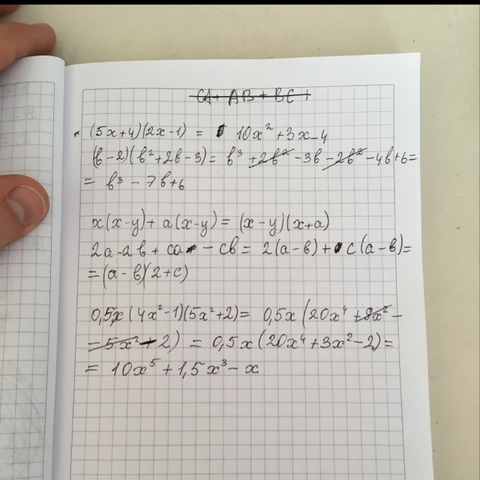 CA + AB + BC +
(5x+4)(2x-1) = 10x² +3x-4
(b-2)(b²+2b-3) = b³ +2b² -3b -2b² -4b+6=
= b³ - 7b+6
x(x-y)+ a(x-y) = (x-y)(x+a)
2a-2b + ca - cb = 2(a-b)+ c(a-b)=
=(a-b)(2+c)
0,5x(4x²-1)(5x²+2)= 0,5x(20x⁴ +8x² -
- 5x² + 2) = 0,5x(20x⁴ +3x² -2)=
= 10x⁵ + 1,5x³ - x